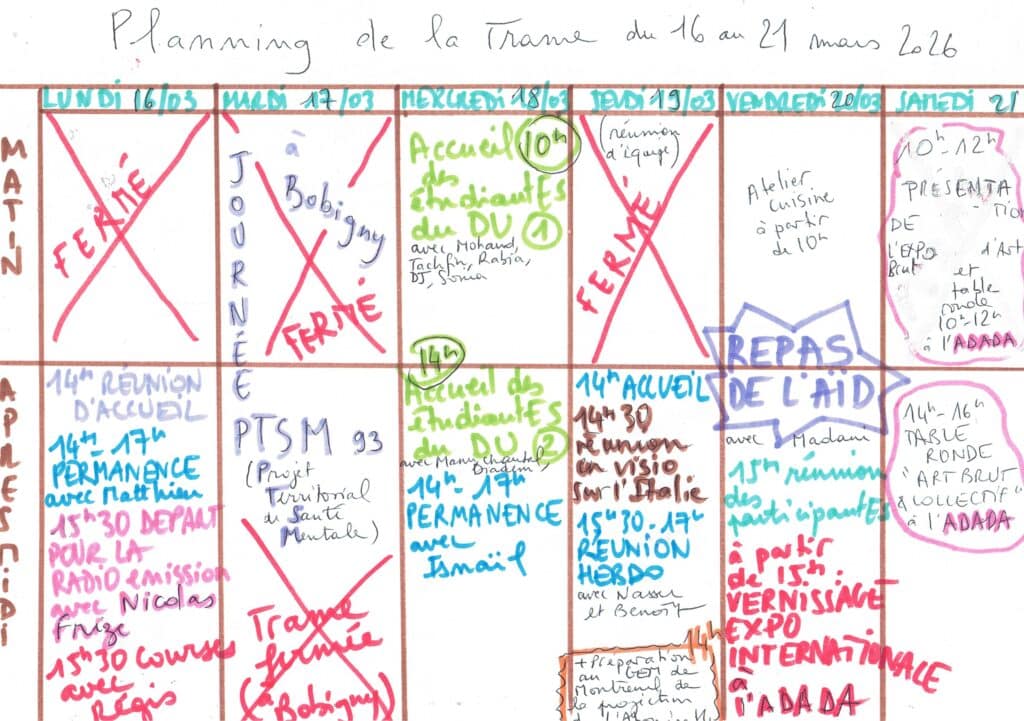 Planning de la Trame du 16 au 21 mars 2026
LUNDI 16/03
MARDI 17/03
MERCREDI 18/03
JEUDI 19/03
VENDREDI 20/03
SAMEDI 21
MATIN
FERMÉ
JOURNÉE
à
Bobigny
FERMÉ
Accueil 10h
des
étudiantEs
du DU 1
avec Mohand,
Tachfin, Rabia,
DJ, Sonia
(réunion
d'équipe)
FERMÉ
Atelier
cuisine
à partir
de 10h
10h-12h
PRÉSENTA
TION
DE
L'EXPO d'Art
Brut et
table
ronde
10h-12h
à l'ADADA
APRES MIDI
14h RÉUNION
D'ACCUEIL
14h-17h
PERMANENCE
avec Matthieu
15h30 DEPART
POUR LA
RADIO emission
avec Nicolas
Frize
15h30 courses
avec
Régis
PTSM 93
(Projet
Territorial
de Santé
Mentale)
Trame
fermée
(à
Bobigny)
14h
Accueil des
étudiantEs
du DU 2
avec Manu, Chantal,
14h-17h
PERMANENCE
avec
Ismaïl
14h ACCUEIL
14h30
réunion
en visio
sur l'Italie
15h30-17h
RÉUNION
HEBDO
avec Nasser
et Benoît
14h
+Préparation
au GEM de
Montreuil de
la projection
REPAS
DE L'AÏD
avec Madani
15h réunion
des
participantEs
à partir
de 15h:
VERNISSAGE
EXPO
INTERNATIONALE
à
l'ADADA
14h-16h
TABLE
RONDE
"ART BRUT
& COLLECTIF"
à l'ADADA